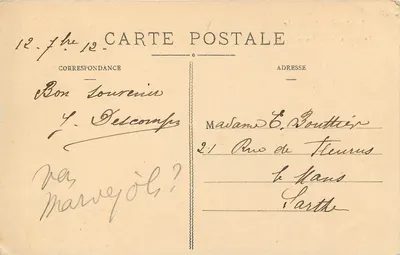 12. 7bre 12.
CARTE POSTALE
CORRESPONDANCE
Bon souvenir
J. Descomps
vers
Marvejòls?
ADRESSE
Madame E. Bouttier
21 Rue de Fleurus
le Mans
Sarthe